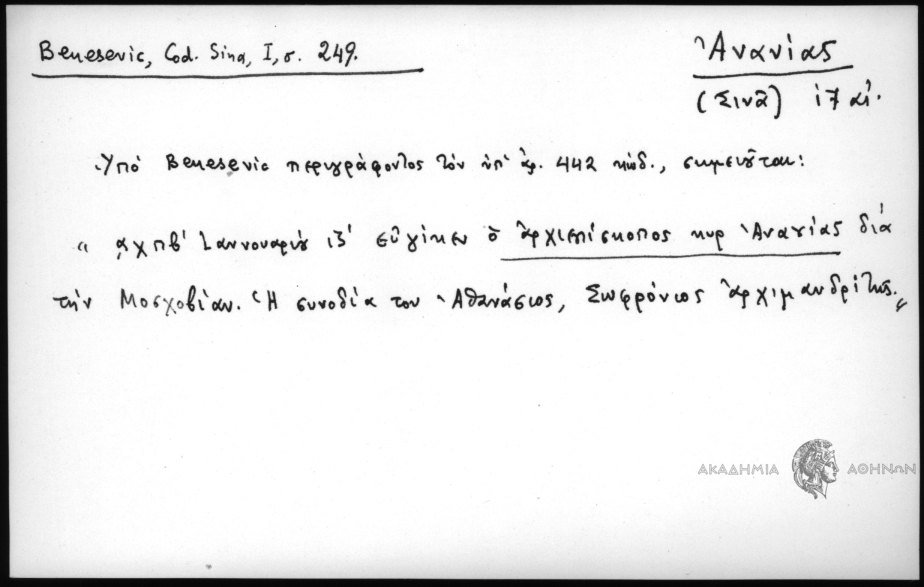 Benesevic, Cod. Sina, I, σ. 249.
Ἀνανίας
(Σινᾶ) 17 αἰ.
Ὑπὸ Benesevic περιγράφοντος τὸν ὑπ' ἀρ. 442 κώδ., σημειοῦται:
"͵αχπβ' Ἰαννουαρίου ιζ' εὐγίκεν ὁ ἀρχιεπίσκοπος κυρ Ἀνανίας διὰ
τὴν Μοσχοβίαν. Ἡ συνοδία του Ἀθανάσιος, Σωφρόνιος ἀρχιμανδρίτης."
ΑΚΑΔΗΜΙΑ ΑΘΗΝΩΝ